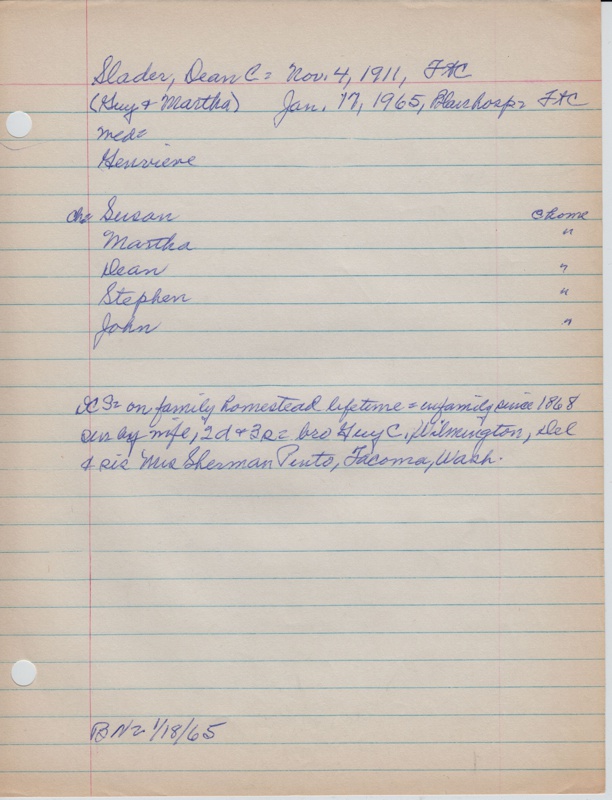 Slader, Dean C = Nov. 4, 1911, FtC
(Guy & Martha) Jan. 17, 1965, Blairhosp = FtC
med =
Genvieve
ch = Susan @ home
Martha "
Dean "
Stephen "
John "
DCS = on family homestead lifetime = in family since 1868
sur by wife, 2d & 3s = bro Guy C, Wilmington, Del
& sis Mrs Sherman Pinto, Tacoma, Wash.
BN = 1/18/65